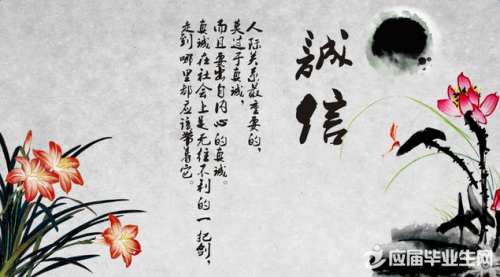 誠信
人际关系最重要的，
莫过于真诚，
而且要出自内心的真诚。
真诚在社会上是无往不利的一把剑，
走到哪里都应该带着它。
应届毕业生网